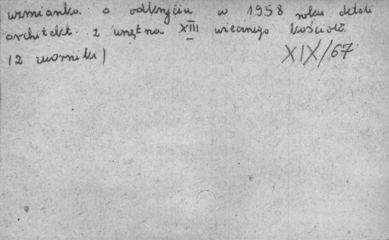 wzmianka o odkryciu w 1958 roku detali
architekt. z wnętrza XIII wiecznego kościoła
(2 worniki)
XIX/67